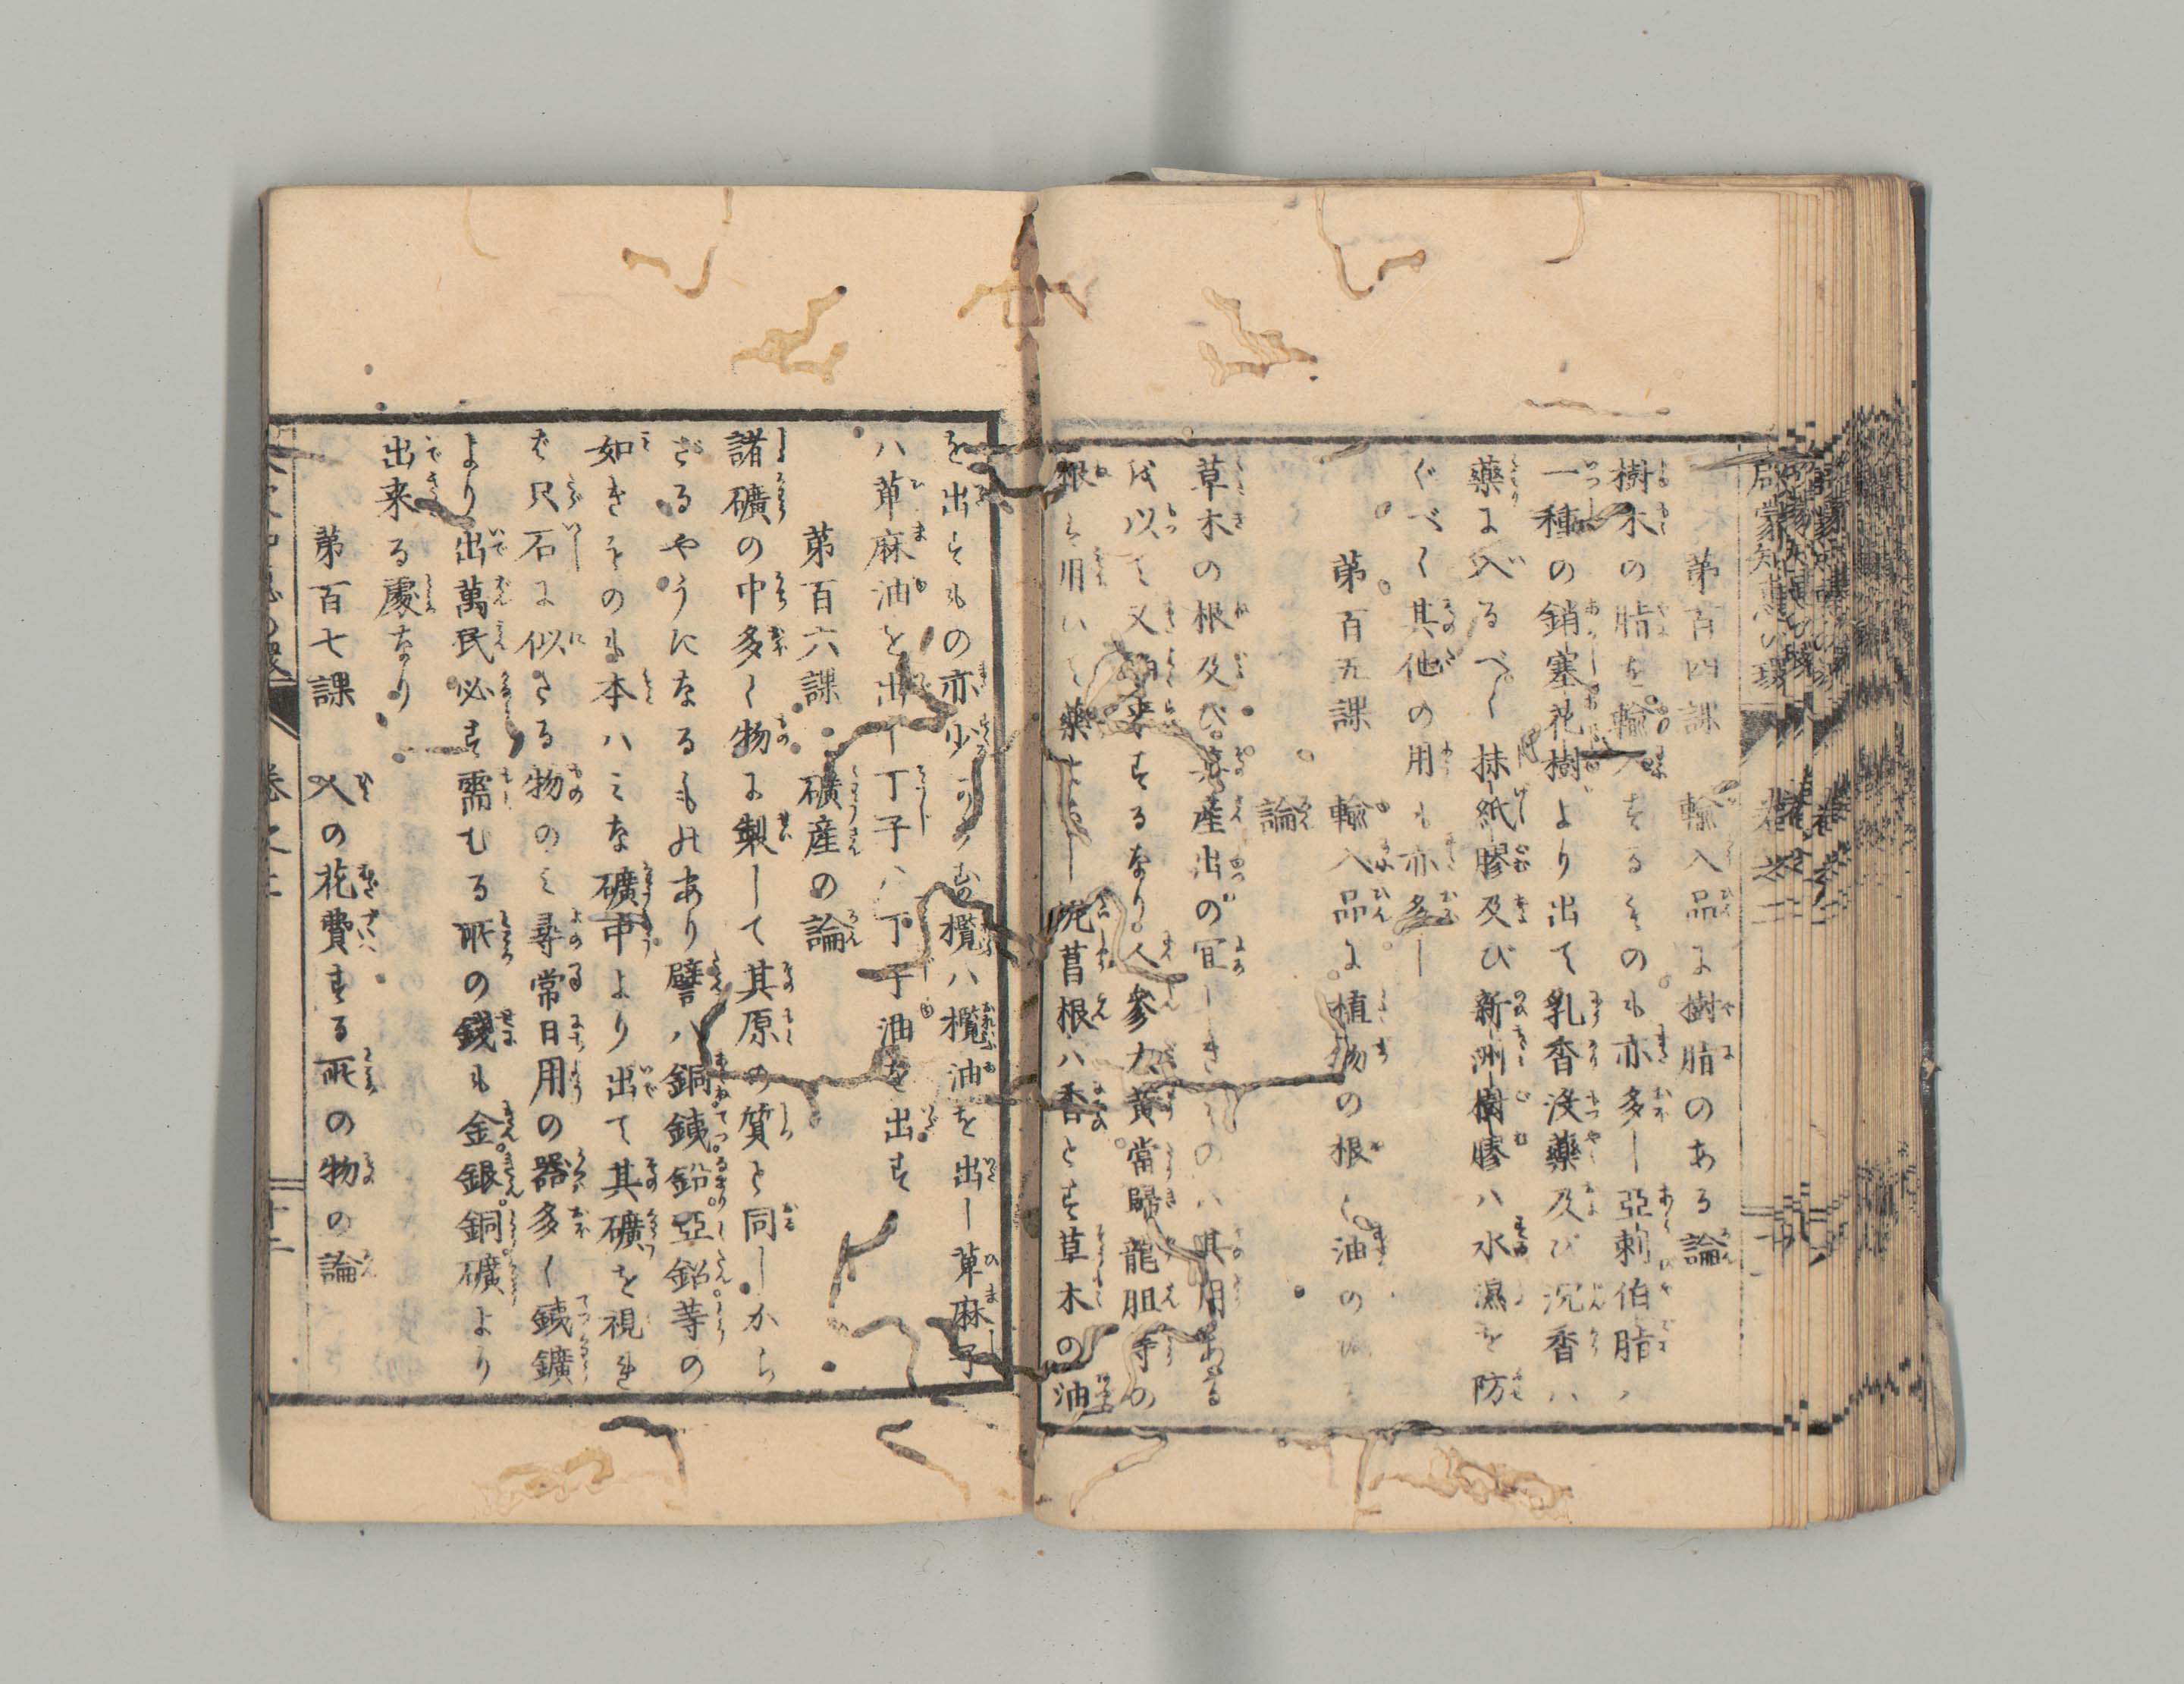 第百四課　輸入品に樹脂のある論
樹木の脂を輸入するもの亦多し亜剌伯脂ハ
一種の銷塞花樹より出て乳香没藥及び沉香ハ
藥に入るべし抹紙膠及び新洲樹膠ハ水濕を防
ぐべく其他の用も亦多し
第百五課　輸入品に植物の根と油の
論
草木の根及び産出の宜しきものハ其用ある
を以て又するなり人參大黄當歸龍胆等の
根を用ひて藥となし菖根ハ香とす草木の油
を出すもの亦少からず欖ハ欖油を出し萆麻子
ハ萆麻油を出し丁子ハ丁子油を出す
第百六課　礦産の論
諸礦の中多く物に製して其原の質と同しから
ざるやうになるもありハ銅鐵鉛亞鉛等の
如きそのも本ハみな礦中より出て其礦を視れ
ば只石に似たる物のミ尋常日用の器多く鐵鑛
より出萬民必す需むる所の錢も金銀銅礦より
出来る處なり
第百七課　人の花費する所の物の論
啓蒙知惠の環　卷之二